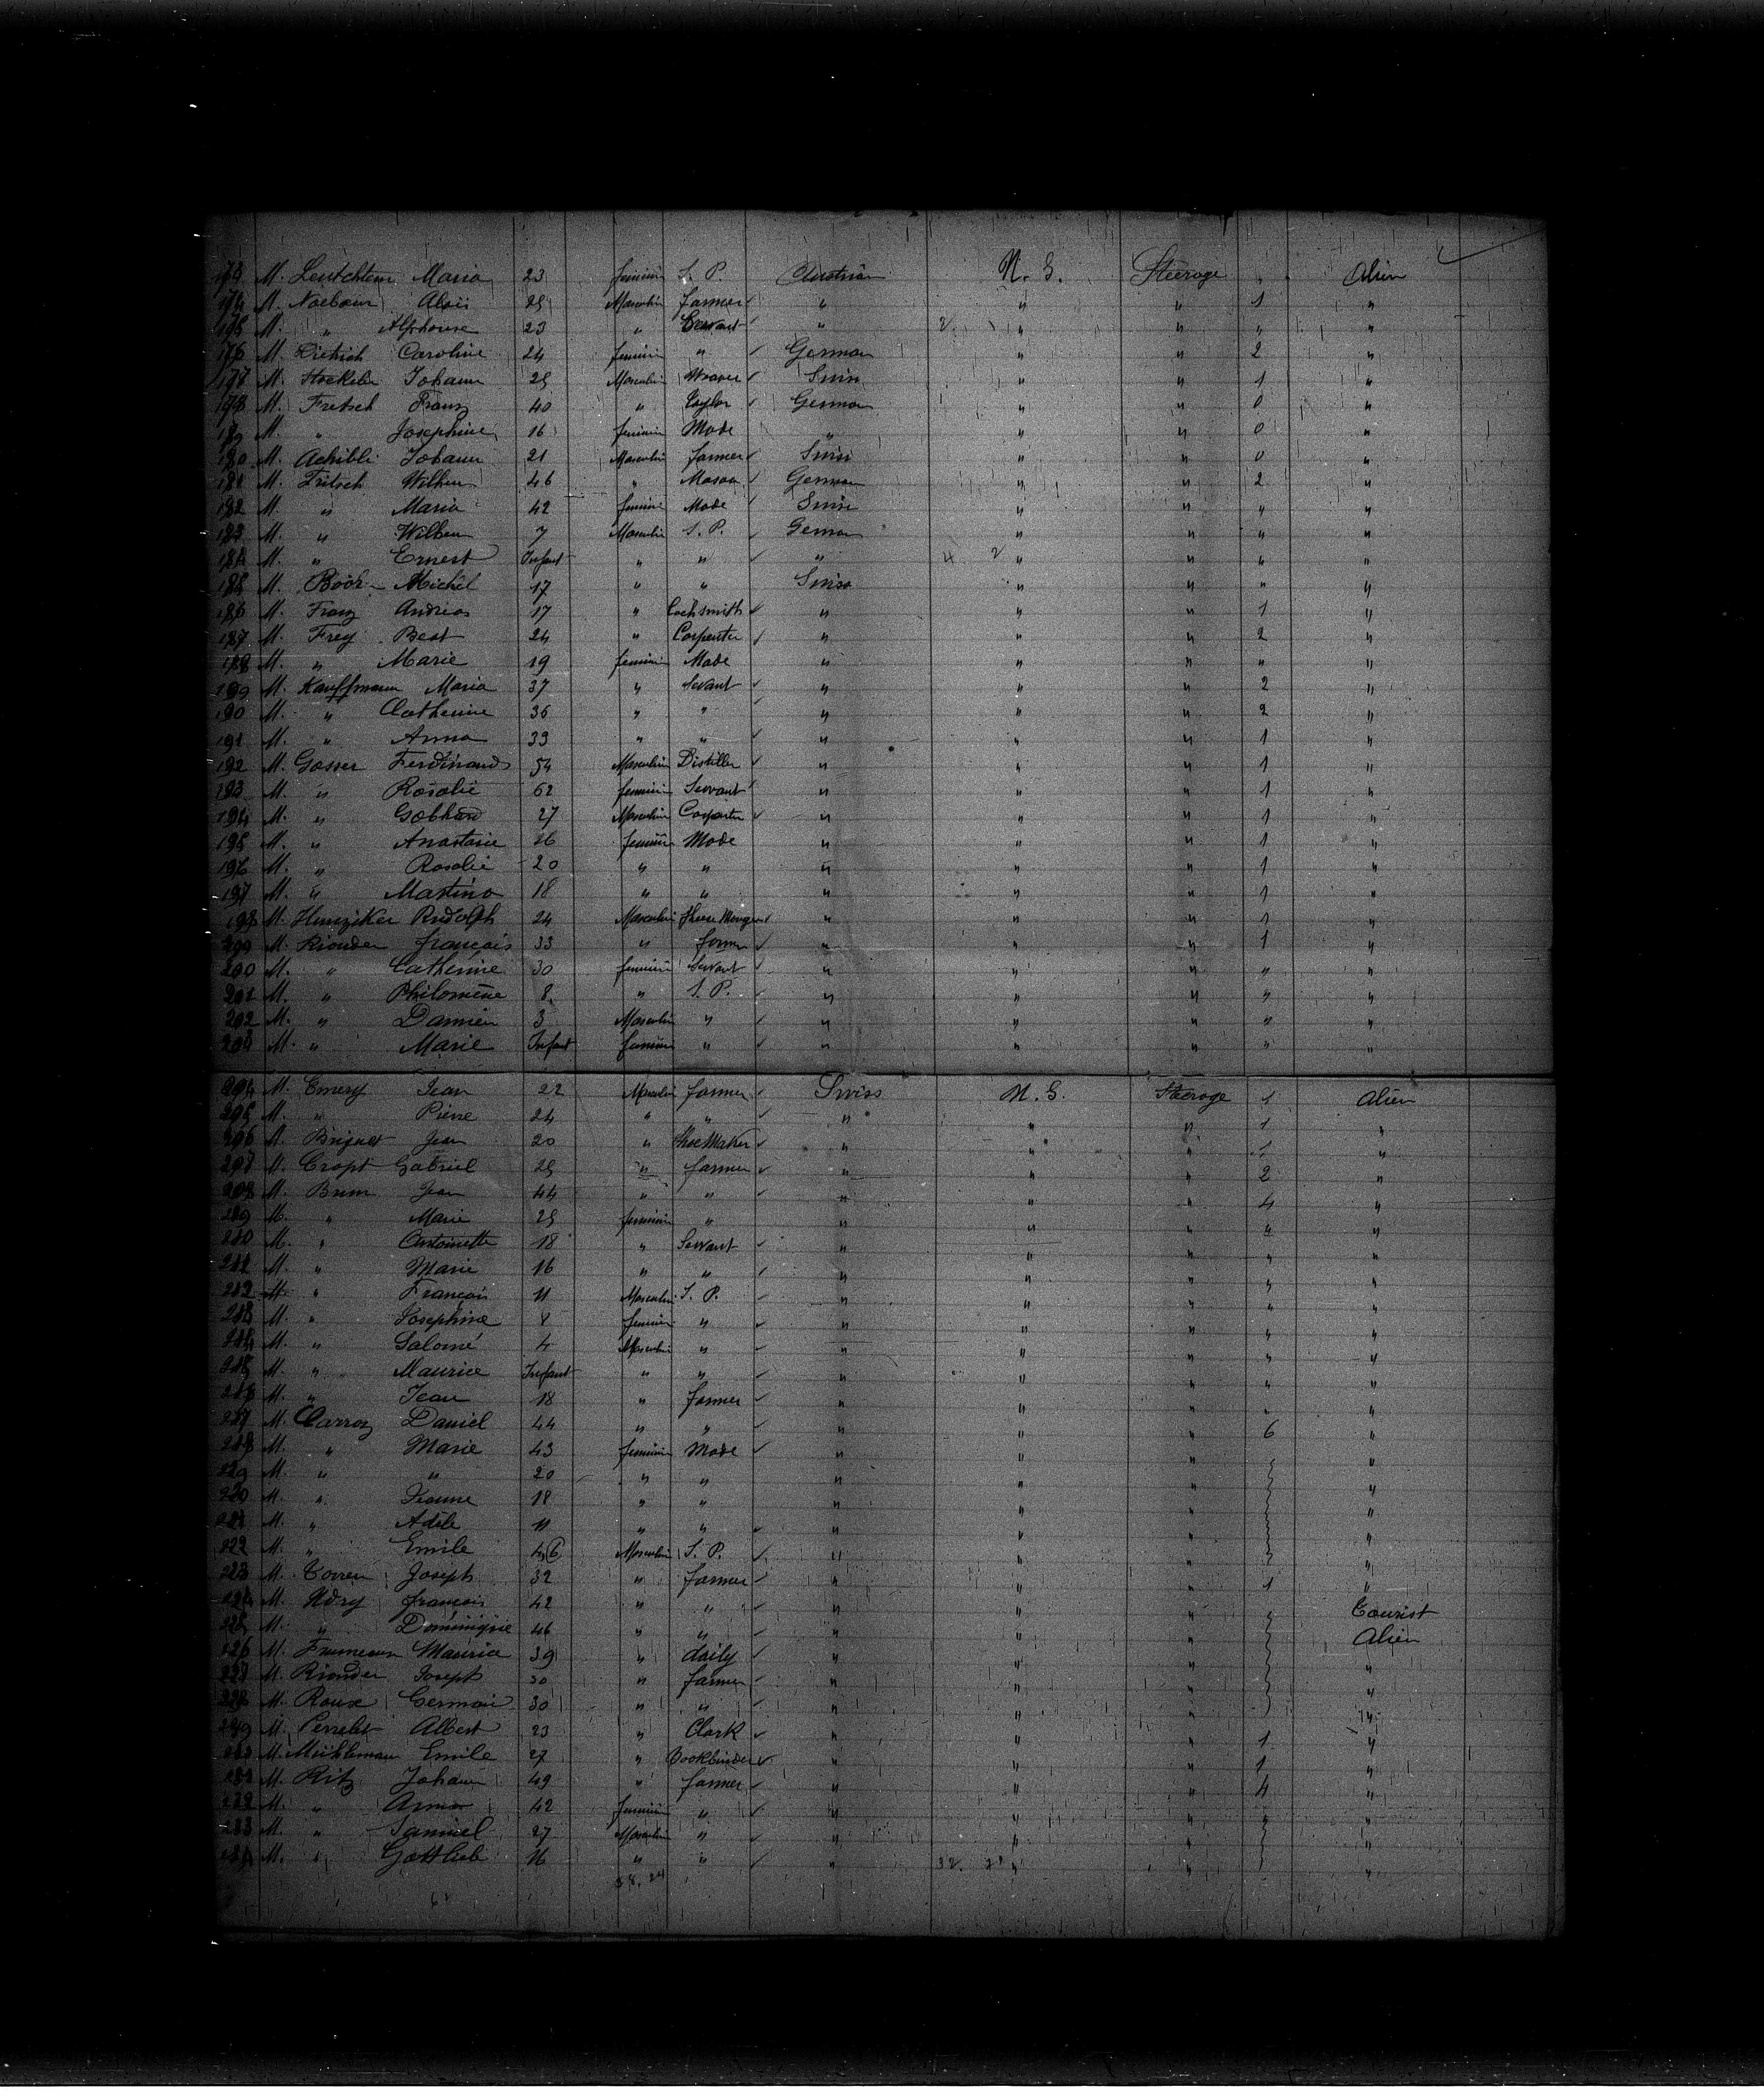 173 M. Leutchtem Maria 23 feminin S. P. Austrian N. G. Steerage " Alien
174 M. Naebaur Aloïs 25 Masculin farmer " " " 1 "
175 M. " Alphonse 23 " Servant " 2 " " " "
176 M. Dietrich Caroline 24 feminin " German " " 2 "
177 M. Stockelin Johann 25 Masculin Weaver Swiss " " 1 "
178 M. Fretsch Franz 40 " Taylor German " " 0 "
179 M. " Josephine 16 feminin Made " " " 0 "
180 M. Achibli Johann 21 Masculin farmer Swiss " " 0 "
181 M. Fritsch Wilhem 46 " Mason German " " 2 "
182 M. " Maria 42 feminin Made Swiss " " " "
183 M. " Wilhem 7 Masculin S. P. German " " " "
184 M. " Ernest Infant " " " 4 2 " " " "
185 M. Böör Michel 17 " " Swiss " " " "
186 M. Franz Andreas 17 " Locksmith " " " 1 "
187 M. Frey Beat 24 " Carpenter " " " 2 "
188 M. " Marie 19 feminin Made " " " " "
189 M. Kauffmann Maria 37 " Servant " " " 2 "
190 M. " Catherine 36 " " " " " 2 "
191 M. " Anna 33 " " " " " 1 "
192 M. Gasser Ferdinand 54 Masculin Distiller " " " 1 "
193 M. " Rosalie 62 feminin Servant " " " 1 "
194 M. " Gebhard 27 Masculin Carpenter " " " 1 "
195 M. " Anastasie 26 feminin Made " " " 1 "
196 M. " Rosalie 20 " " " " " 1 "
197 M. " Martina 18 " " " " " 1 "
198 M. Hunziker Rudolph 24 Masculin Cheese Monger " " " 1 "
199 M. Rionder François 33 " farmer " " " 1 "
200 M. " Catherine 30 feminin Servant " " " " "
201 M. " Philomène 8 " S. P. " " " " "
202 M. " Damien 3 Masculin " " " " " "
203 M. " Marie Infant feminin " " " " " "
204 M. Emery Jean 22 Masculin farmer Swiss N. G. Steerage 1 Alien
205 M. " Pierre 24 " " " " " 1 "
206 M. Briguet Jean 20 " ShoeMaker " " " 1 "
207 M. Cropt Gabriel 25 " farmer " " " 2 "
208 M. Brun Jean 44 " " " " " 4 "
209 M. " Marie 25 feminin " " " " " "
210 M. " Antoinette 18 " Servant " " " " "
211 M. " Marie 16 " " " " " " "
212 M. " François 11 Masculin S. P. " " " " "
213 M. " Josephine 8 feminin " " " " " "
214 M. " Salomé 4 Masculin " " " " " "
215 M. " Maurice Infant " " " " " " "
216 M. " Jean 18 " farmer " " " " "
217 M. Carroz Daniel 44 " " " " " 6 "
218 M. " Marie 43 feminin Made " " " "
219 M. " " 20 " " " " " "
220 M. " Jeanne 18 " " " " " "
221 M. " Adèle 11 " " " " " "
222 M. " Emile 4 6 Masculin S. P. " " " "
223 M. Torren Joseph 32 " farmer " " " 1 "
224 M. Udry François 42 " " " " " Tourist
225 M. " Dominique 46 " " " " " Alien
226 M. Maurice 39 " daily " " " "
227 M. Rionder Joseph 30 " farmer " " " "
228 M. Roux Germain 30 " " " " " "
229 M. Perrelet Albert 23 " Clark " " " 1 "
230 M. Mühleman Emile 27 " Bookbinder " " " 1 "
231 M. Ritz Johann 49 " farmer " " " 4 "
232 M. " Anna 42 feminin " " " " " "
233 M. " Samuel 27 Masculin " " " " "
234 M. " Gottlieb 16 " " " 32 " " "
38. 24